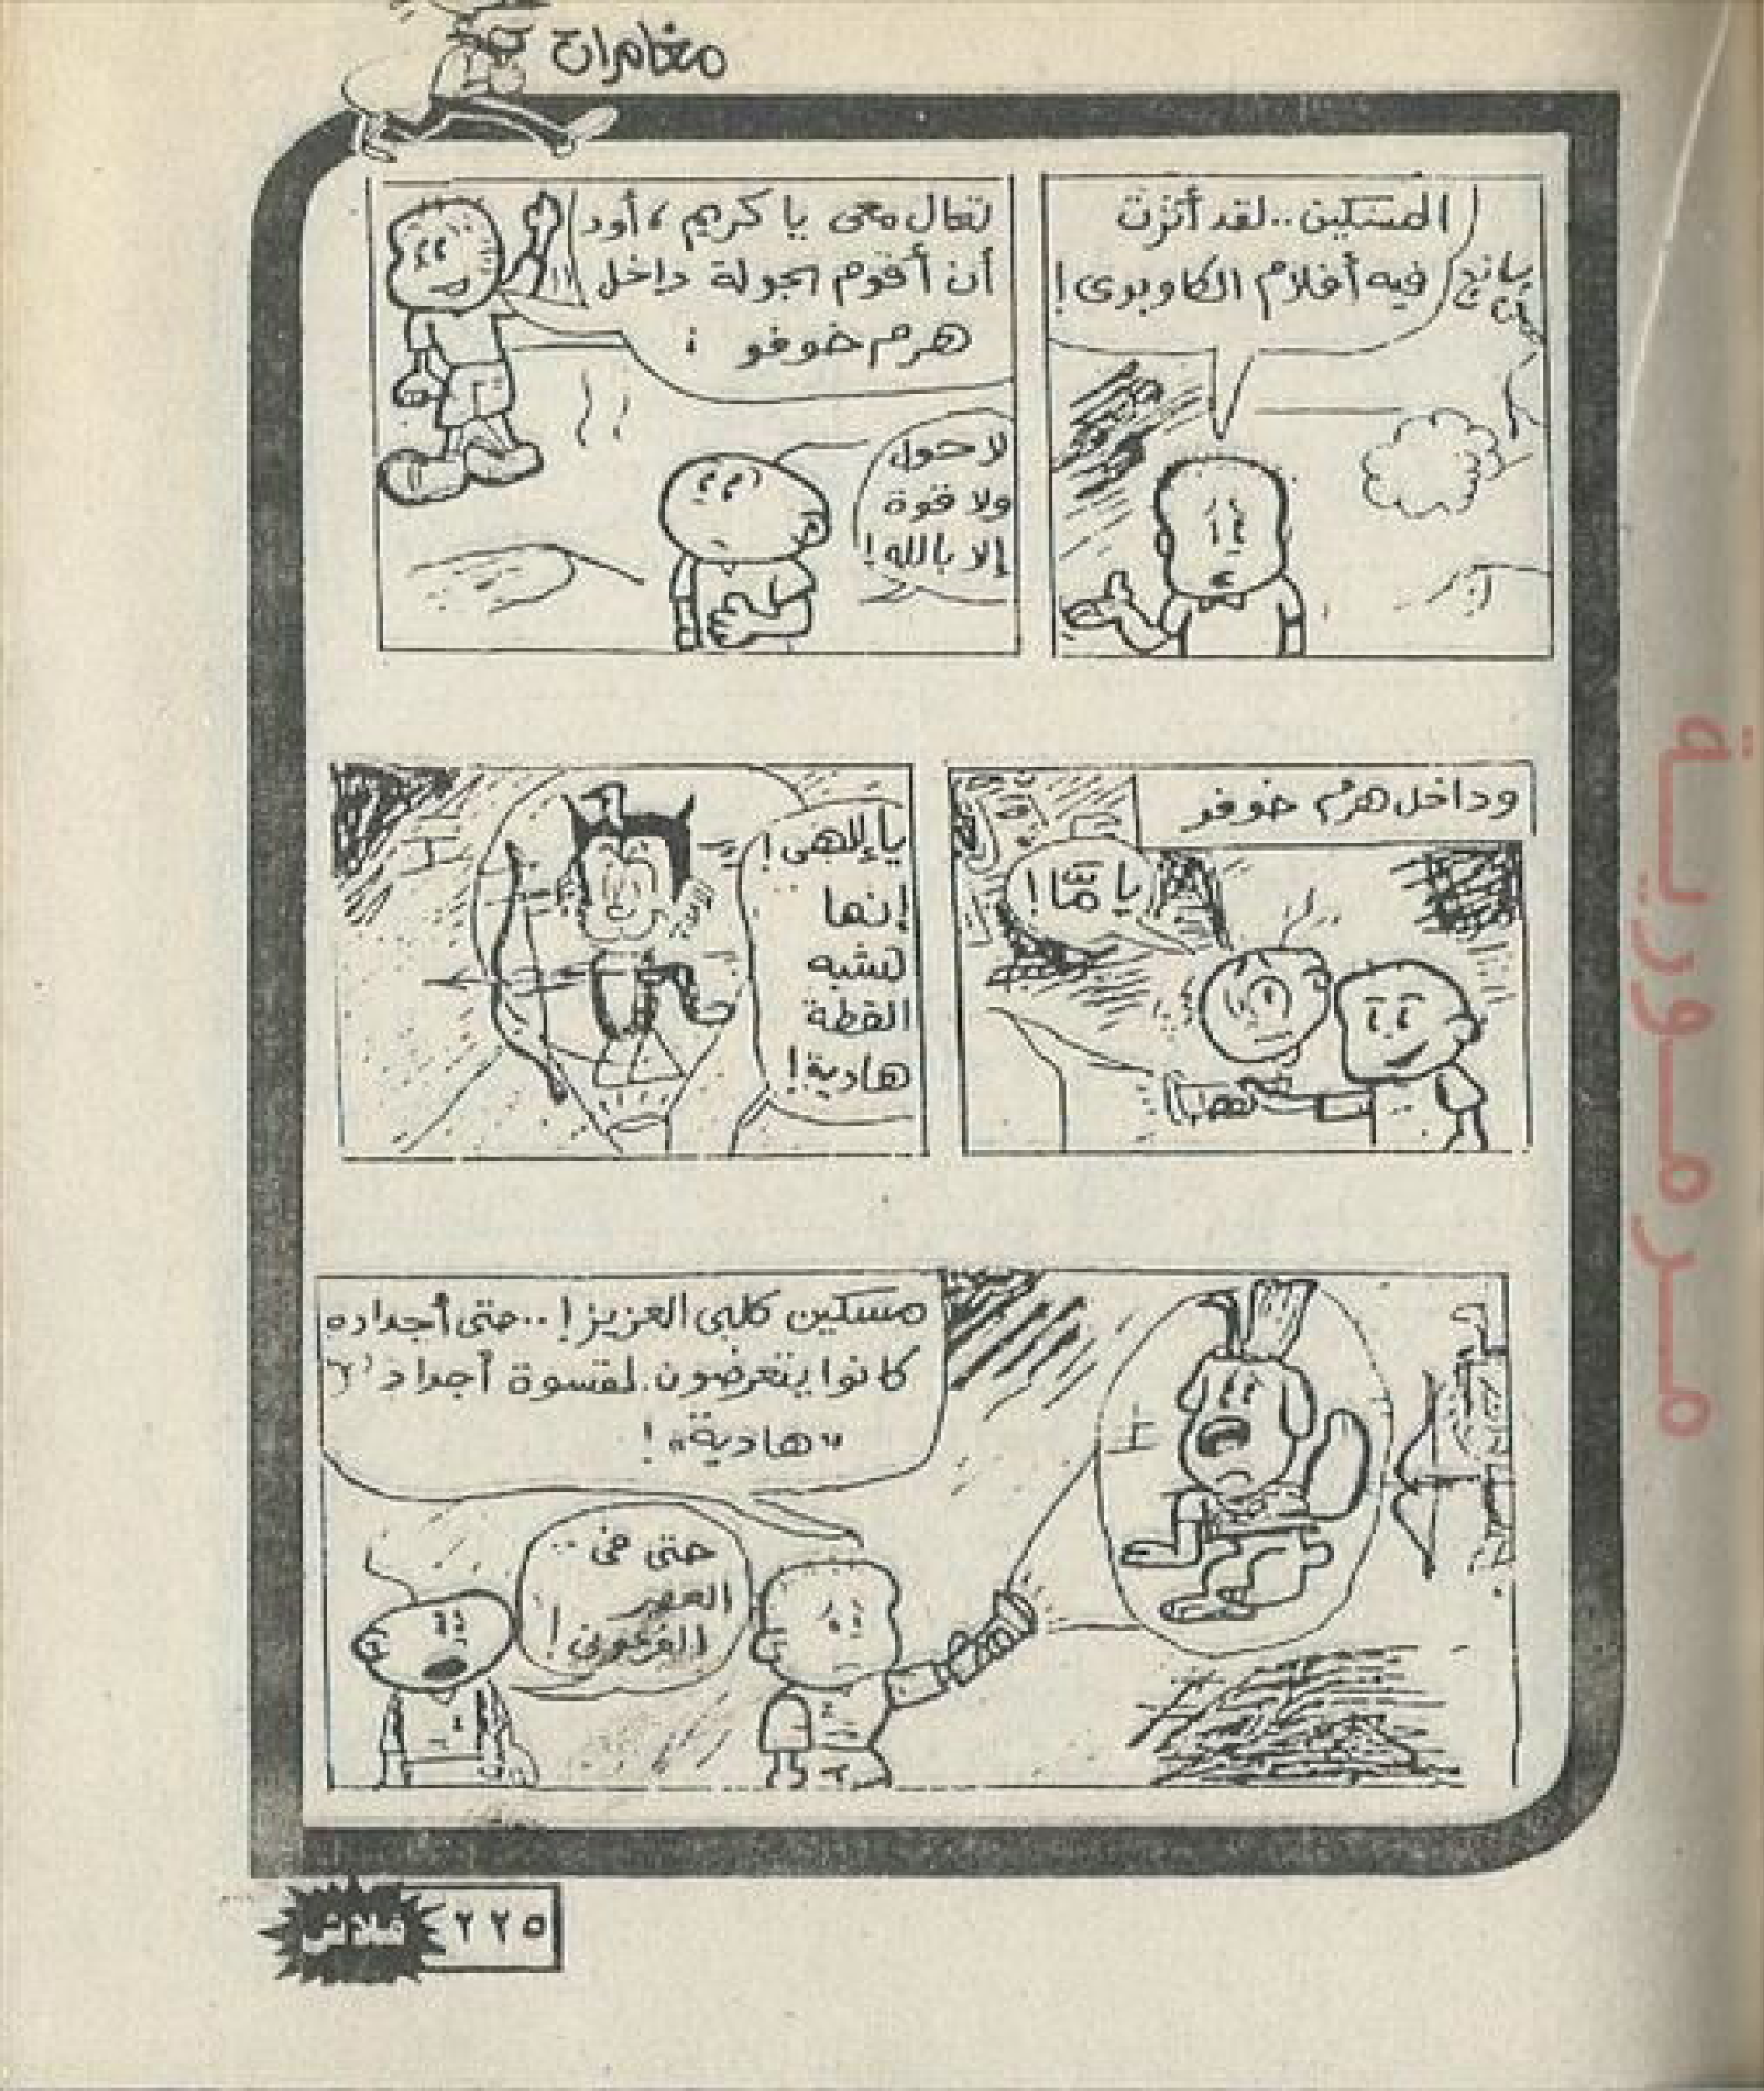 مغامرات
المسكين.. لقد أثرت
فيه أفلام الكاوبوى!
تعال معى يا كريم، أود
أن أقوم بجولة داخل
هرم خوفو !
لا حول
ولا قوة
إلا بالله!
وداخل هرم خوفو
يا مَّا!
ياإلهى!
إنها
تشبه
القطة
هادية!
مسكين كلبى العزيز!.. حتى أجداده
كانوا يتعرضون لقسوة أجداد
"هادية"!
حتى فى..
العصر
الفرعونى!
فلاش ٢٢٥
مرمورية